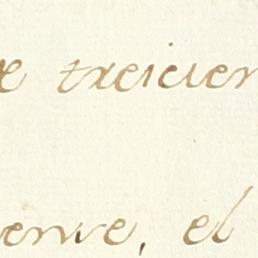 e treicien
enve, el